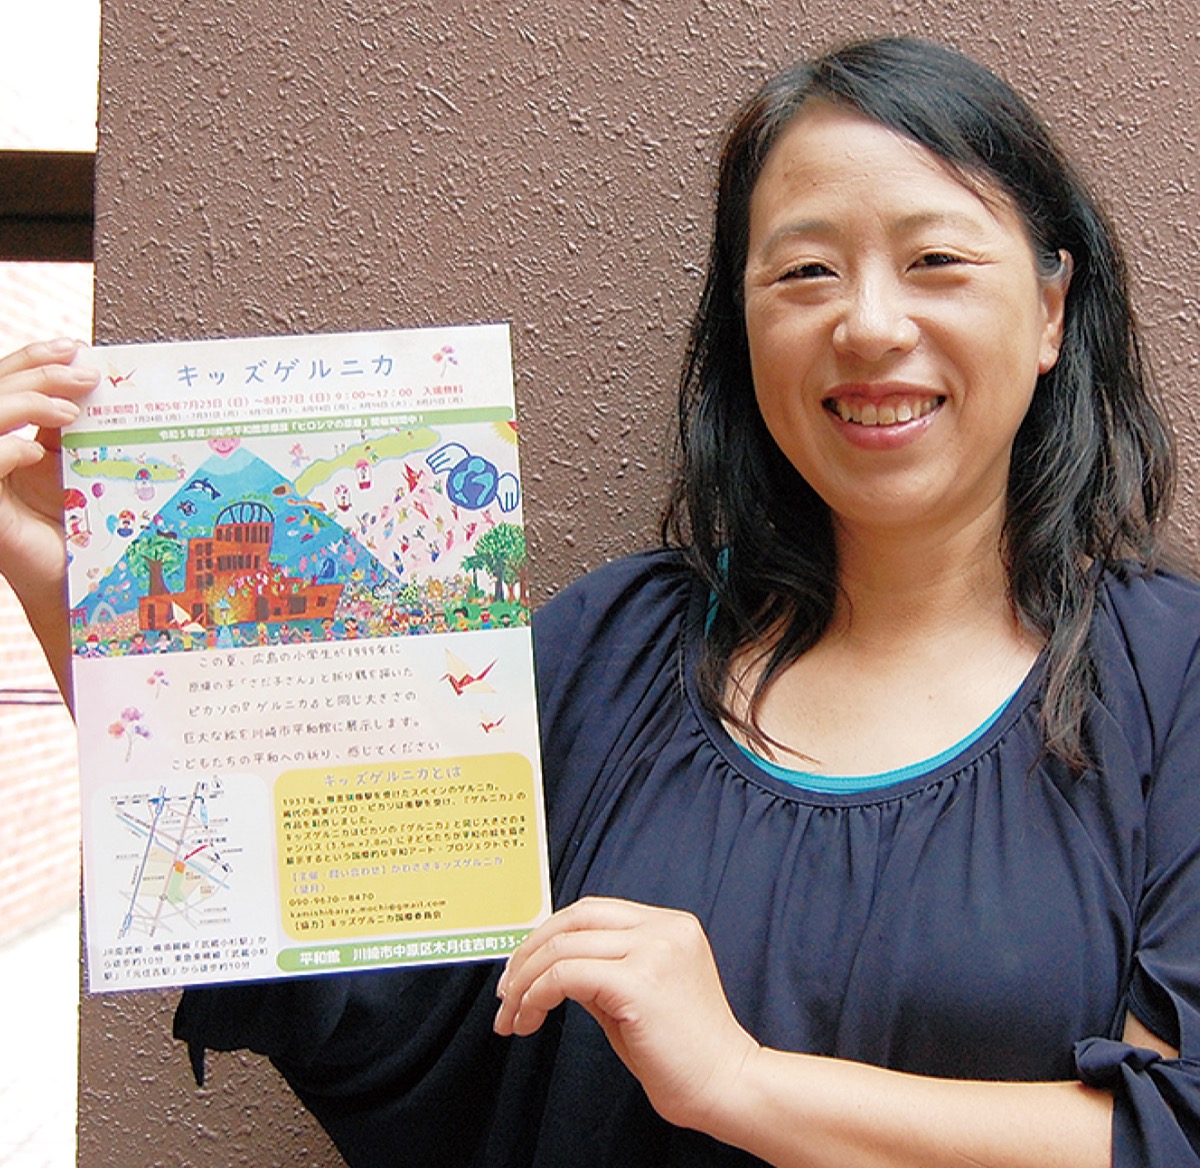 キッズゲルニカ
【展示期間】令和5年7月23日（日）～8月27日（日）9：00～17：00　入場無料
令和5年度川崎市平和館原爆展「ヒロシマの原爆」開催期間中！
この夏、広島の小学生が1999年に
原爆の子「さだ子さん」と折り鶴を描いた
ピカソの『ゲルニカ』と同じ大きさの
巨大な絵を川崎市平和館に展示します。
こどもたちの平和への祈り、感じてください
キッズゲルニカとは
1937年、無差別爆撃を受けたスペインのゲルニカ。
画家パブロ・ピカソは衝撃を受け、「ゲルニカ」の
作品を制作しました。
キッズゲルニカはピカソの「ゲルニカ」と同じ大きさのキ
ャンバス（3.5m×7.8m）に子どもたちが平和の絵を描き
展示するという国際的な平和アート・プロジェクトです。
【主催・問い合わせ】かわさきキッズゲルニカ
（望月）
090-9670-8470
kamishibaiya.mochi@gmail.com
【協力】キッズゲルニカ国際委員会
JR南武線・横須賀線「武蔵小杉駅」か
ら徒歩約10分　東急東横線「武蔵小杉
駅」「元住吉駅」から徒歩約10分
平和館　川崎市中原区木月住吉町33-